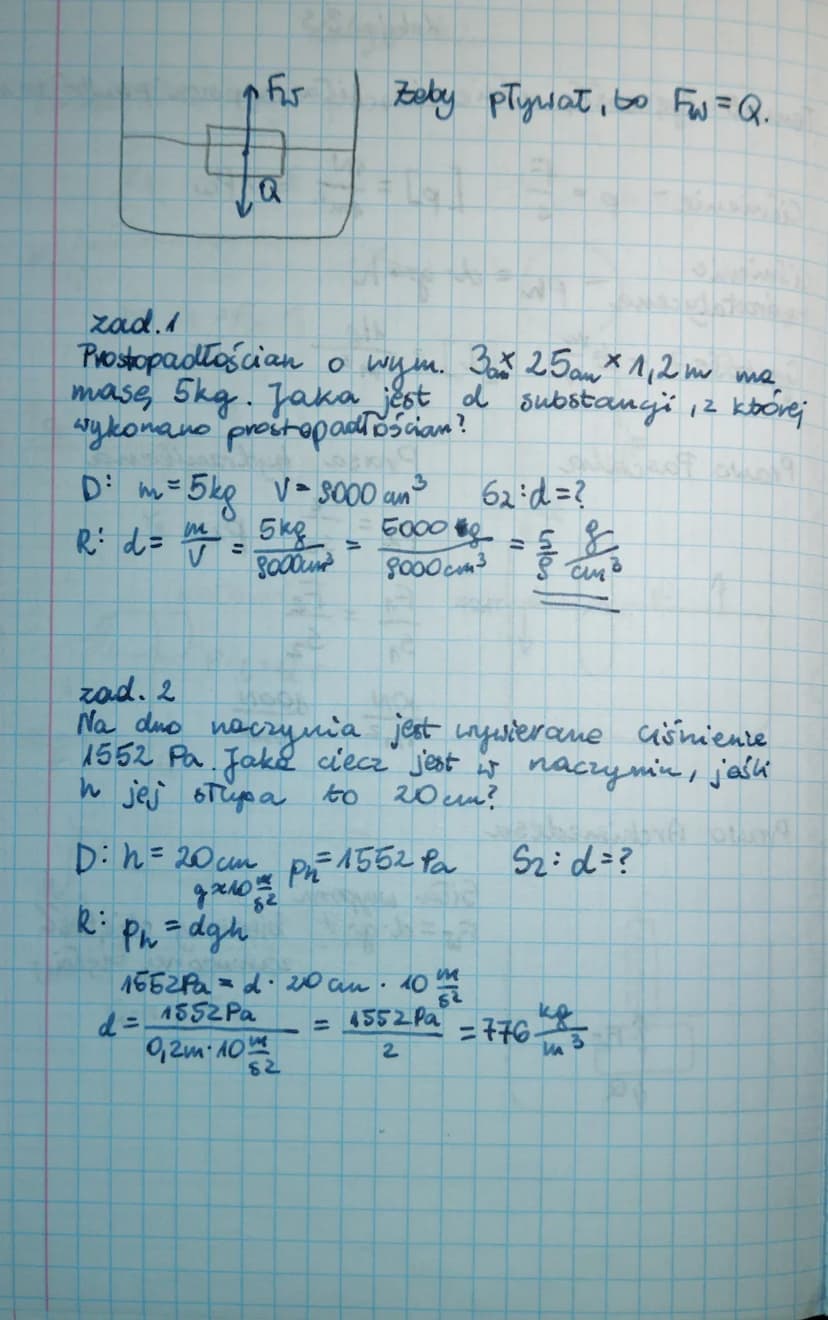 Fw
Żeby pływał, to Fw = Q.
Q
zad. 1
Prostopadłościan o wym. 3cm × 25cm × 1,2m ma
masę 5kg. Jaka jest d substancji, z której
wykonano prostopadłościan?
D: m = 5kg V = 9000cm³ Sz: d = ?
R: d = m/V = 5kg/9000cm³ = 5000g/9000cm³ = 5/9 g/cm³
zad. 2
Na dno naczynia jest wywierane ciśnienie
1552 Pa. Jaka ciecz jest w naczyniu, jeśli
h jej słupa to 20cm?
D: h = 20cm pₕ = 1552 Pa Sz: d = ?
g ≈ 10 m/s²
R: pₕ = dgh
1552Pa = d · 20cm · 10 m/s²
d = 1552Pa/0,2m·10 m/s² = 1552Pa/2 = 776 kg/m³